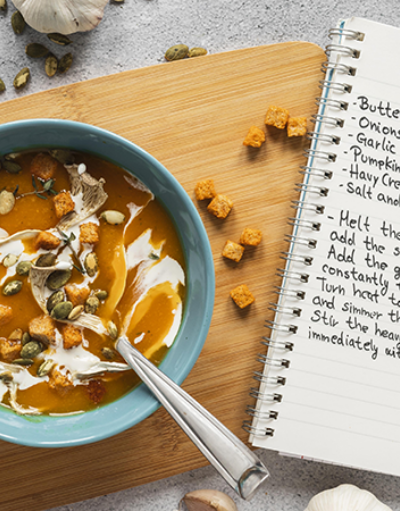 - Butte
- Onions
- Garlic
- Pumpkin
- Havy Cre
- Salt and
- Melt the
add the s
Add the g
constantly t
Turn heat to
and simmer th
Stir the heav
immediately wi